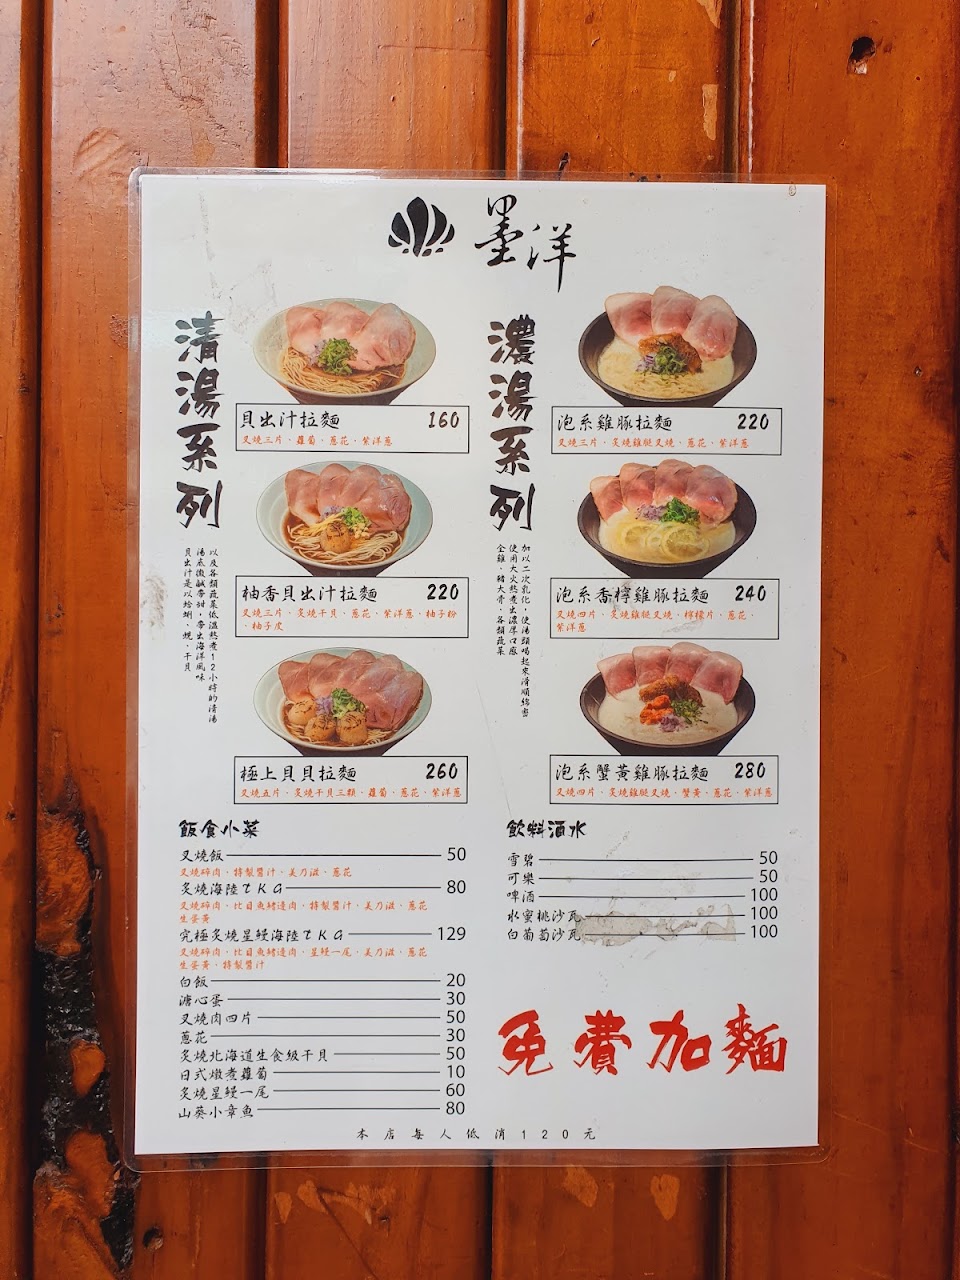 墨洋
清湯系列
貝出汁拉麵 160
叉燒三片、蘿蔔、蔥花、紫洋蔥
柚香貝出汁拉麵 220
叉燒三片、炙燒干貝、蔥花、紫洋蔥、柚子粉
、柚子皮
極上貝貝拉麵 260
叉燒五片、炙燒干貝三顆、蘿蔔、蔥花、紫洋蔥
以及各類蔬菜低溫熬煮12小時的清湯
湯底微鹹帶甜，帶出海洋風味
貝出汁是以蛤蜊、蜆、干貝
濃湯系列
泡系雞豚拉麵 220
叉燒三片、炙燒雞腿叉燒、蔥花、紫洋蔥
泡系香檸雞豚拉麵 240
叉燒四片、炙燒雞腿叉燒、檸檬片、蔥花、
紫洋蔥
泡系蟹黃雞豚拉麵 280
叉燒四片、炙燒雞腿叉燒、蟹黃、蔥花、紫洋蔥
加以二次乳化，使湯頭喝起來滑順綿密
使用大火熬煮出濃厚口感
全雞、豬大骨、各類蔬菜
飯食小菜
叉燒飯 50
叉燒碎肉、特製醬汁、美乃滋、蔥花
炙燒海陸TKG 80
叉燒碎肉、比目魚鰭邊肉、特製醬汁、美乃滋、蔥花
生蛋黃
究極炙燒星鰻海陸TKG 129
叉燒碎肉、比目魚鰭邊肉、星鰻一尾、美乃滋、蔥花
生蛋黃、特製醬汁
白飯 20
溏心蛋 30
叉燒肉四片 50
蔥花 30
炙燒北海道生食級干貝 50
日式燉煮蘿蔔 10
炙燒星鰻一尾 60
山葵小章魚 80
飲料酒水
雪碧 50
可樂 50
啤酒 100
水蜜桃沙瓦 100
白葡萄沙瓦 100
免費加麵
本店每人低消120元